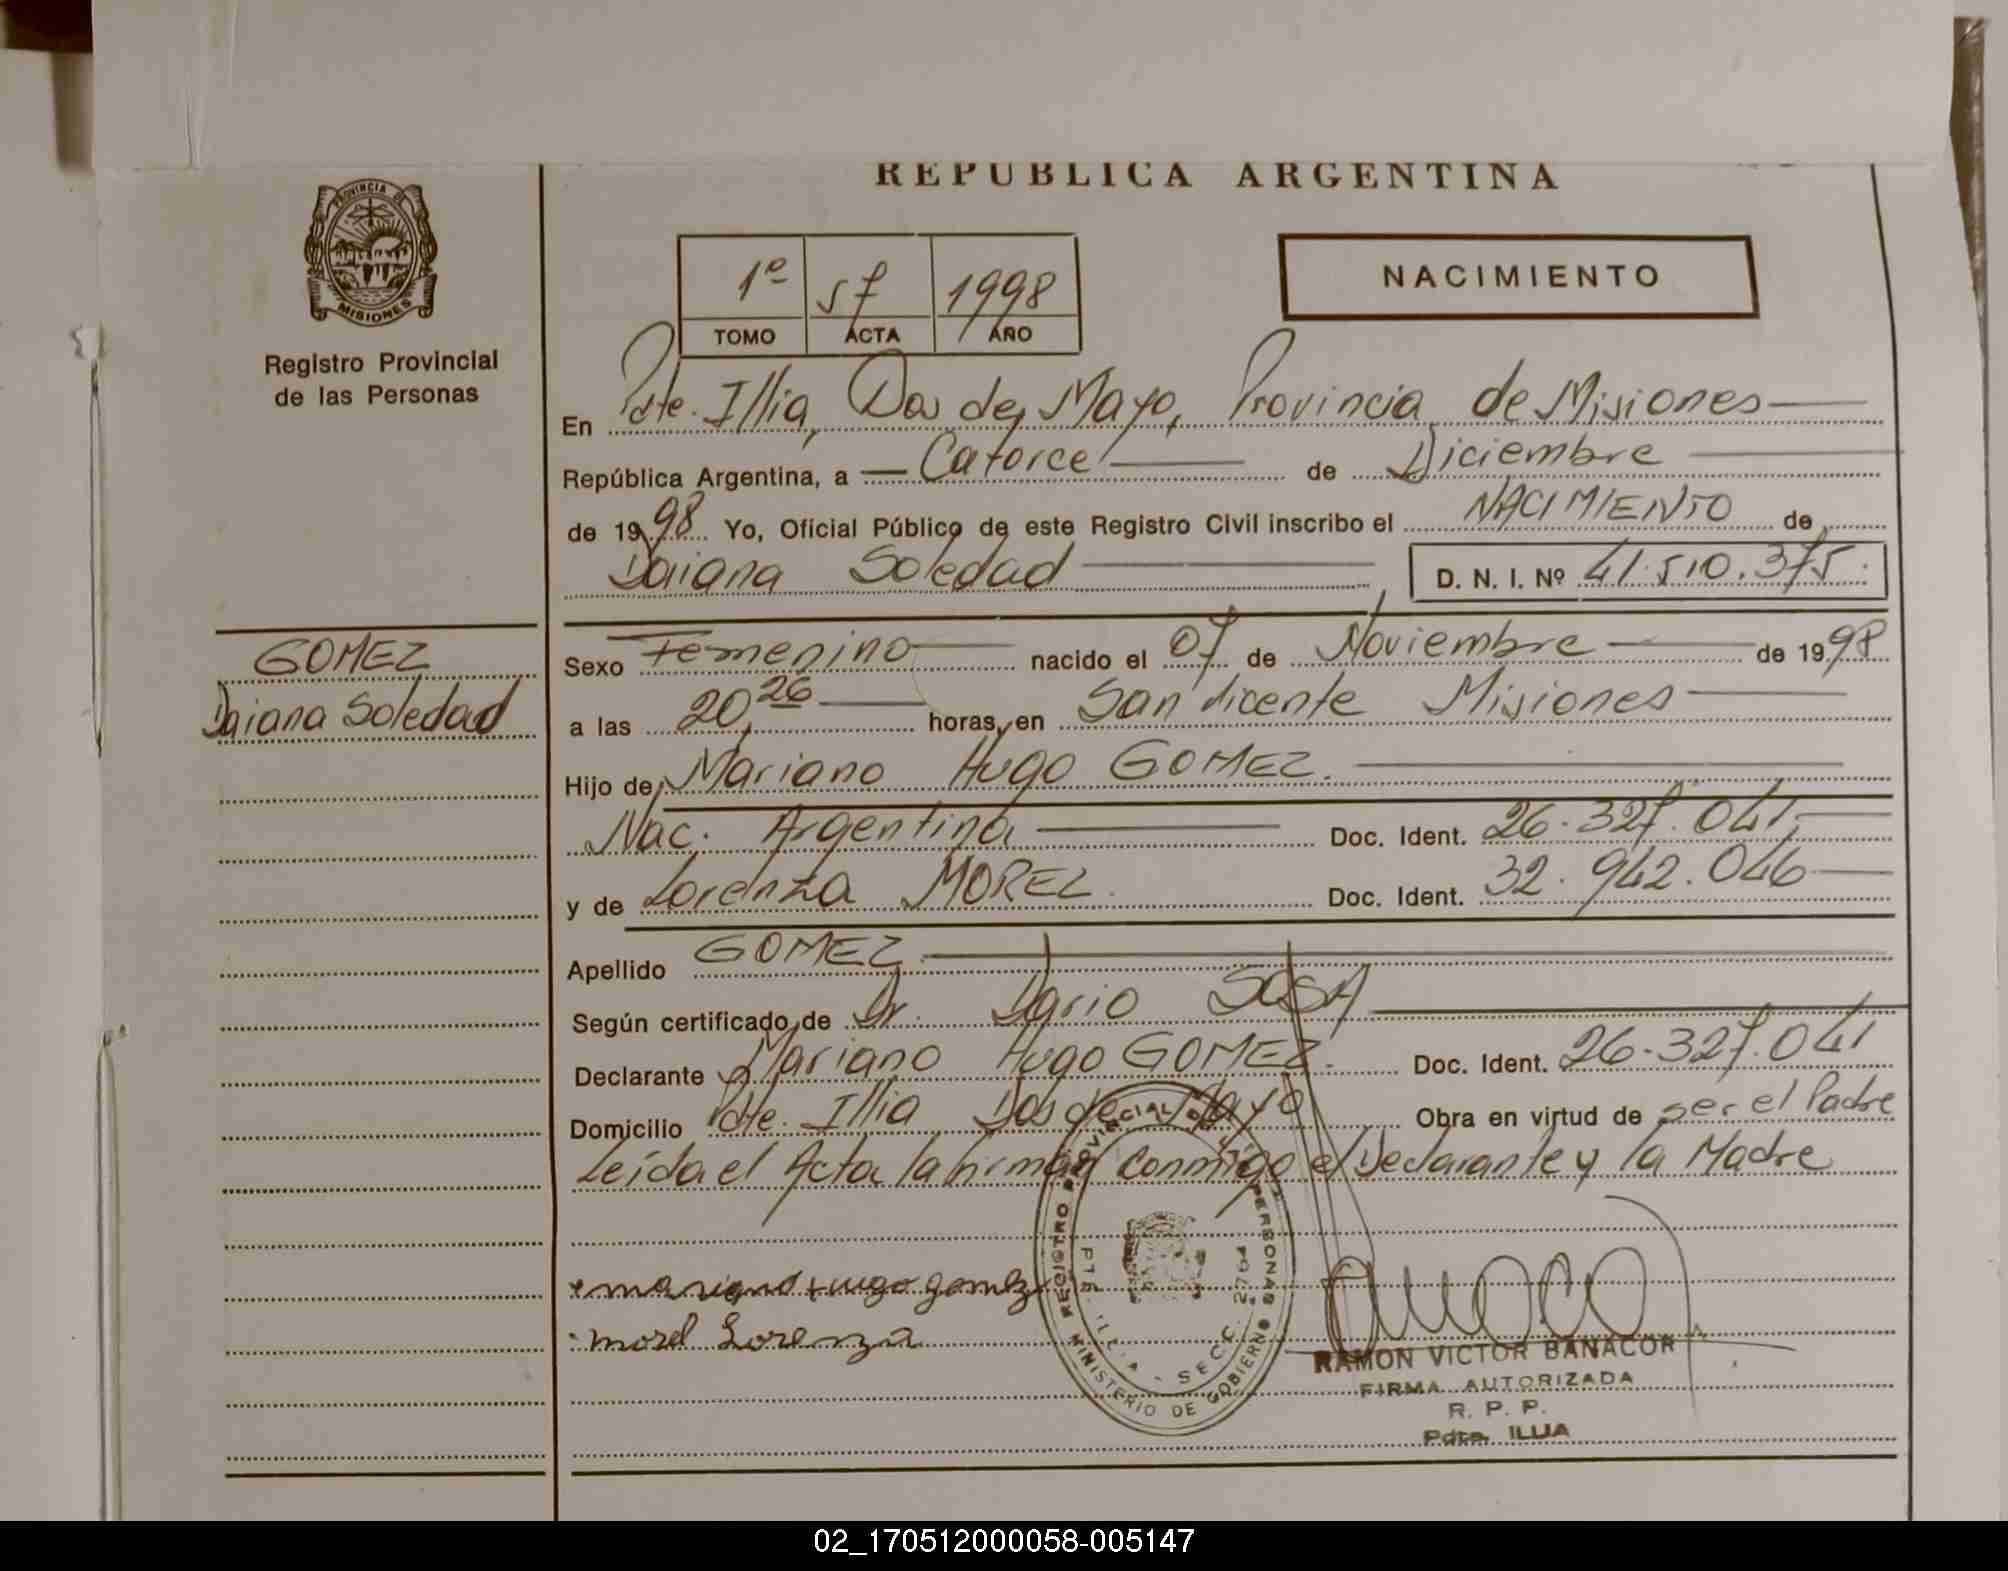 REPUBLICA ARGENTINA
PROVINCIA DE
MISIONES
Registro Provincial
de las Personas
1º 57 1998
TOMO ACTA AÑO
NACIMIENTO
En Pdte. Illia, Dos de Mayo, Provincia de Misiones
República Argentina, a Catorce de Diciembre
de 1998 Yo, Oficial Público de este Registro Civil inscribo el NACIMIENTO de
Daiana Soledad D. N. I. Nº 41.510.375.
GOMEZ
Daiana Soledad
Sexo Femenino nacido el 07 de Noviembre de 1998
a las 20,26 horas, en San Vicente Misiones
Hijo de Mariano Hugo GOMEZ.
Nac. Argentina Doc. Ident. 26.327.041,
y de Lorenza MOREL. Doc. Ident. 32.942.046
Apellido GOMEZ
Según certificado de Dr. Dario SOSA
Declarante Mariano Hugo GOMEZ. Doc. Ident. 26.327.041
Domicilio Pdte. Illia Dos de Mayo Obra en virtud de ser el Padre
Leída el Acta la firman conmigo el Declarante y la Madre
mariano Hugo gomez
morel Lorenza
REGISTRO PROVINCIAL DE LAS PERSONAS
MINISTERIO DE GOBIERNO
PTE. ILLIA - SECC. 2764
RAMON VICTOR BANACOR
FIRMA AUTORIZADA
R. P. P.
Pdte. ILLIA
02_170512000058-005147